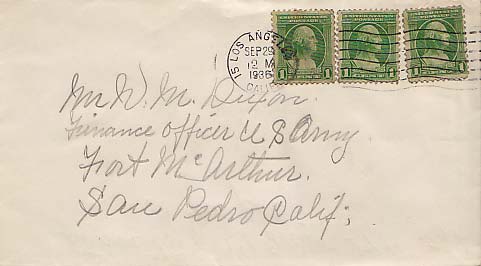 15 LOS ANGELES
SEP 29
12 M
1936
CALIF.
UNITED STATES POSTAGE
1 1
UNITED STATES POSTAGE
1 1
UNITED STATES POSTAGE
1 1
Mr W. M. Dixon.
Finance Officer U S Army.
Fort McArthur.
San Pedro Calif;